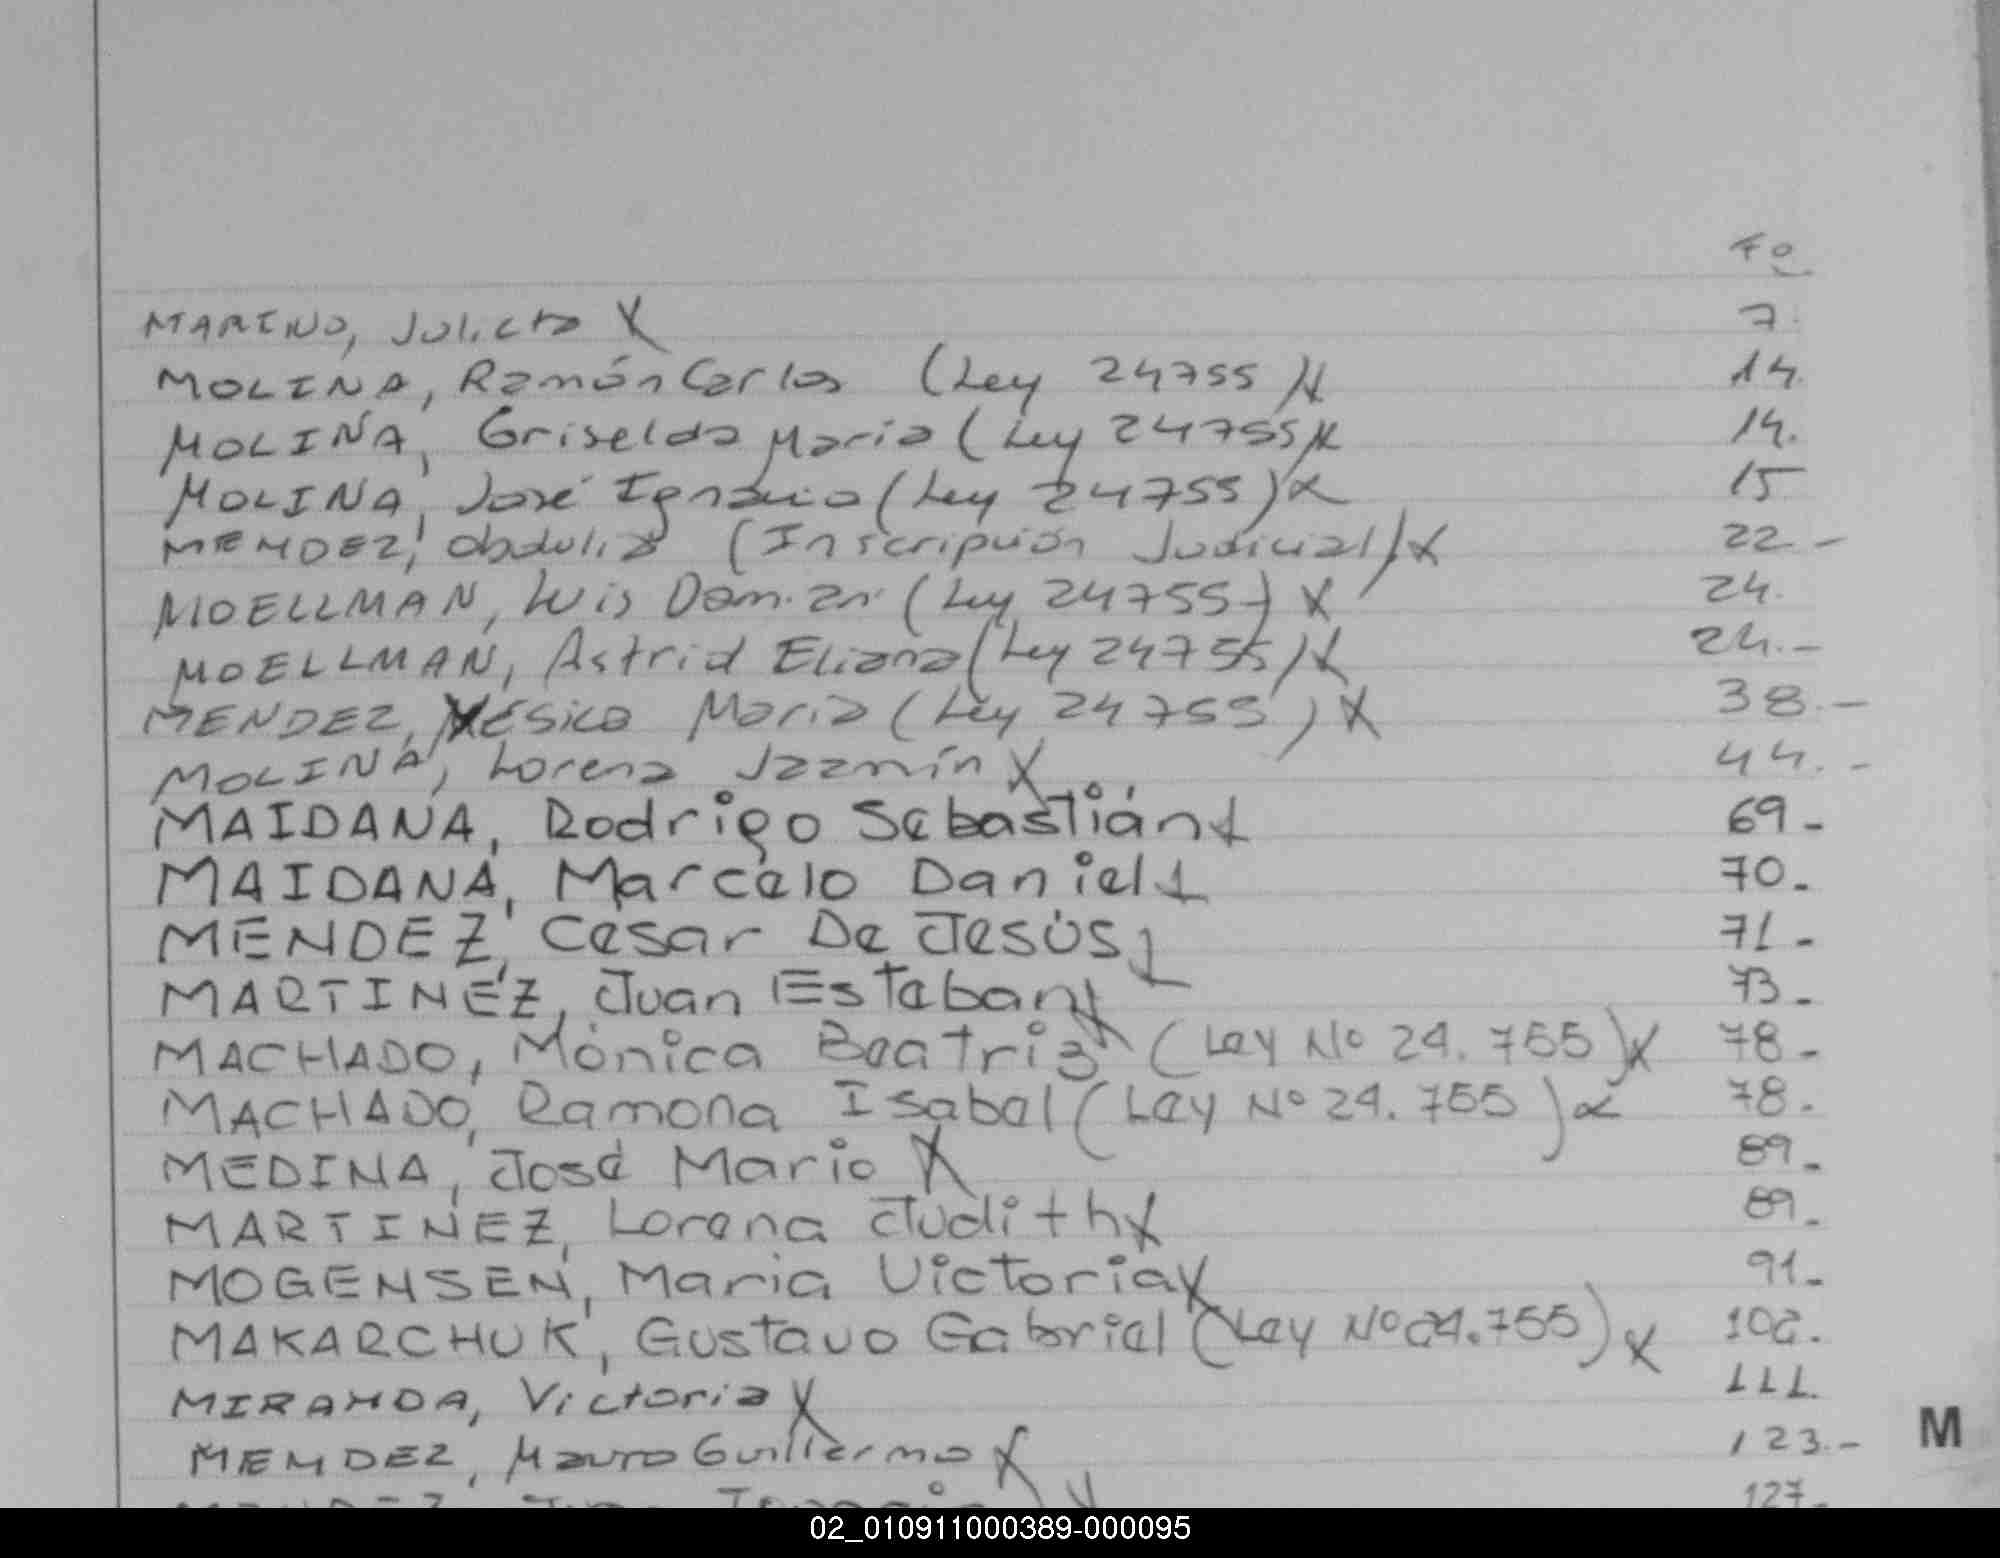 Fo
MARINO, Julieta X 7.
MOLINA, Ramón Carlos (Ley 24755) X 14.
MOLINA, Griselda Maria (Ley 24755) X 14.
MOLINA, José Ignacio (Ley 24755) X 15
MENDEZ, Obdulia (Inscripción Judicial) X 22.-
MOELLMAN, Luis Damian (Ley 24755) X 24.
MOELLMAN, Astrid Eliana (Ley 24755) X 24.-
MENDEZ, Yésica Maria (Ley 24755) X 38.-
MOLINA, Lorena Jazmín X 44.-
MAIDANA, Rodrigo Sebastián X 69-
MAIDANA, Marcelo Daniel X 70-
MENDEZ, Cesar De Jesús X 71-
MARTINEZ, Juan Esteban X 73-
MACHADO, Mónica Beatriz (Ley No 24.755) X 78-
MACHADO, Ramona Isabel (Ley No 24.755) X 78.
MEDINA, José Mario X 89-
MARTINEZ, Lorena Judith X 89-
MOGENSEN, Maria Victoria X 91-
MAKARCHUK, Gustavo Gabriel (Ley No 24.755) X 102.
MIRANDA, Victoria X 111.
M
MENDEZ, Mauro Guillermo X 123.-
MENDEZ, 127-
02_010911000389-000095